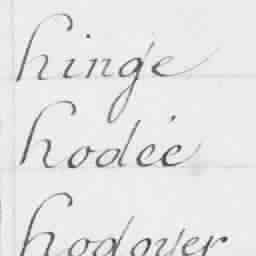 hinge
hodée
hogover